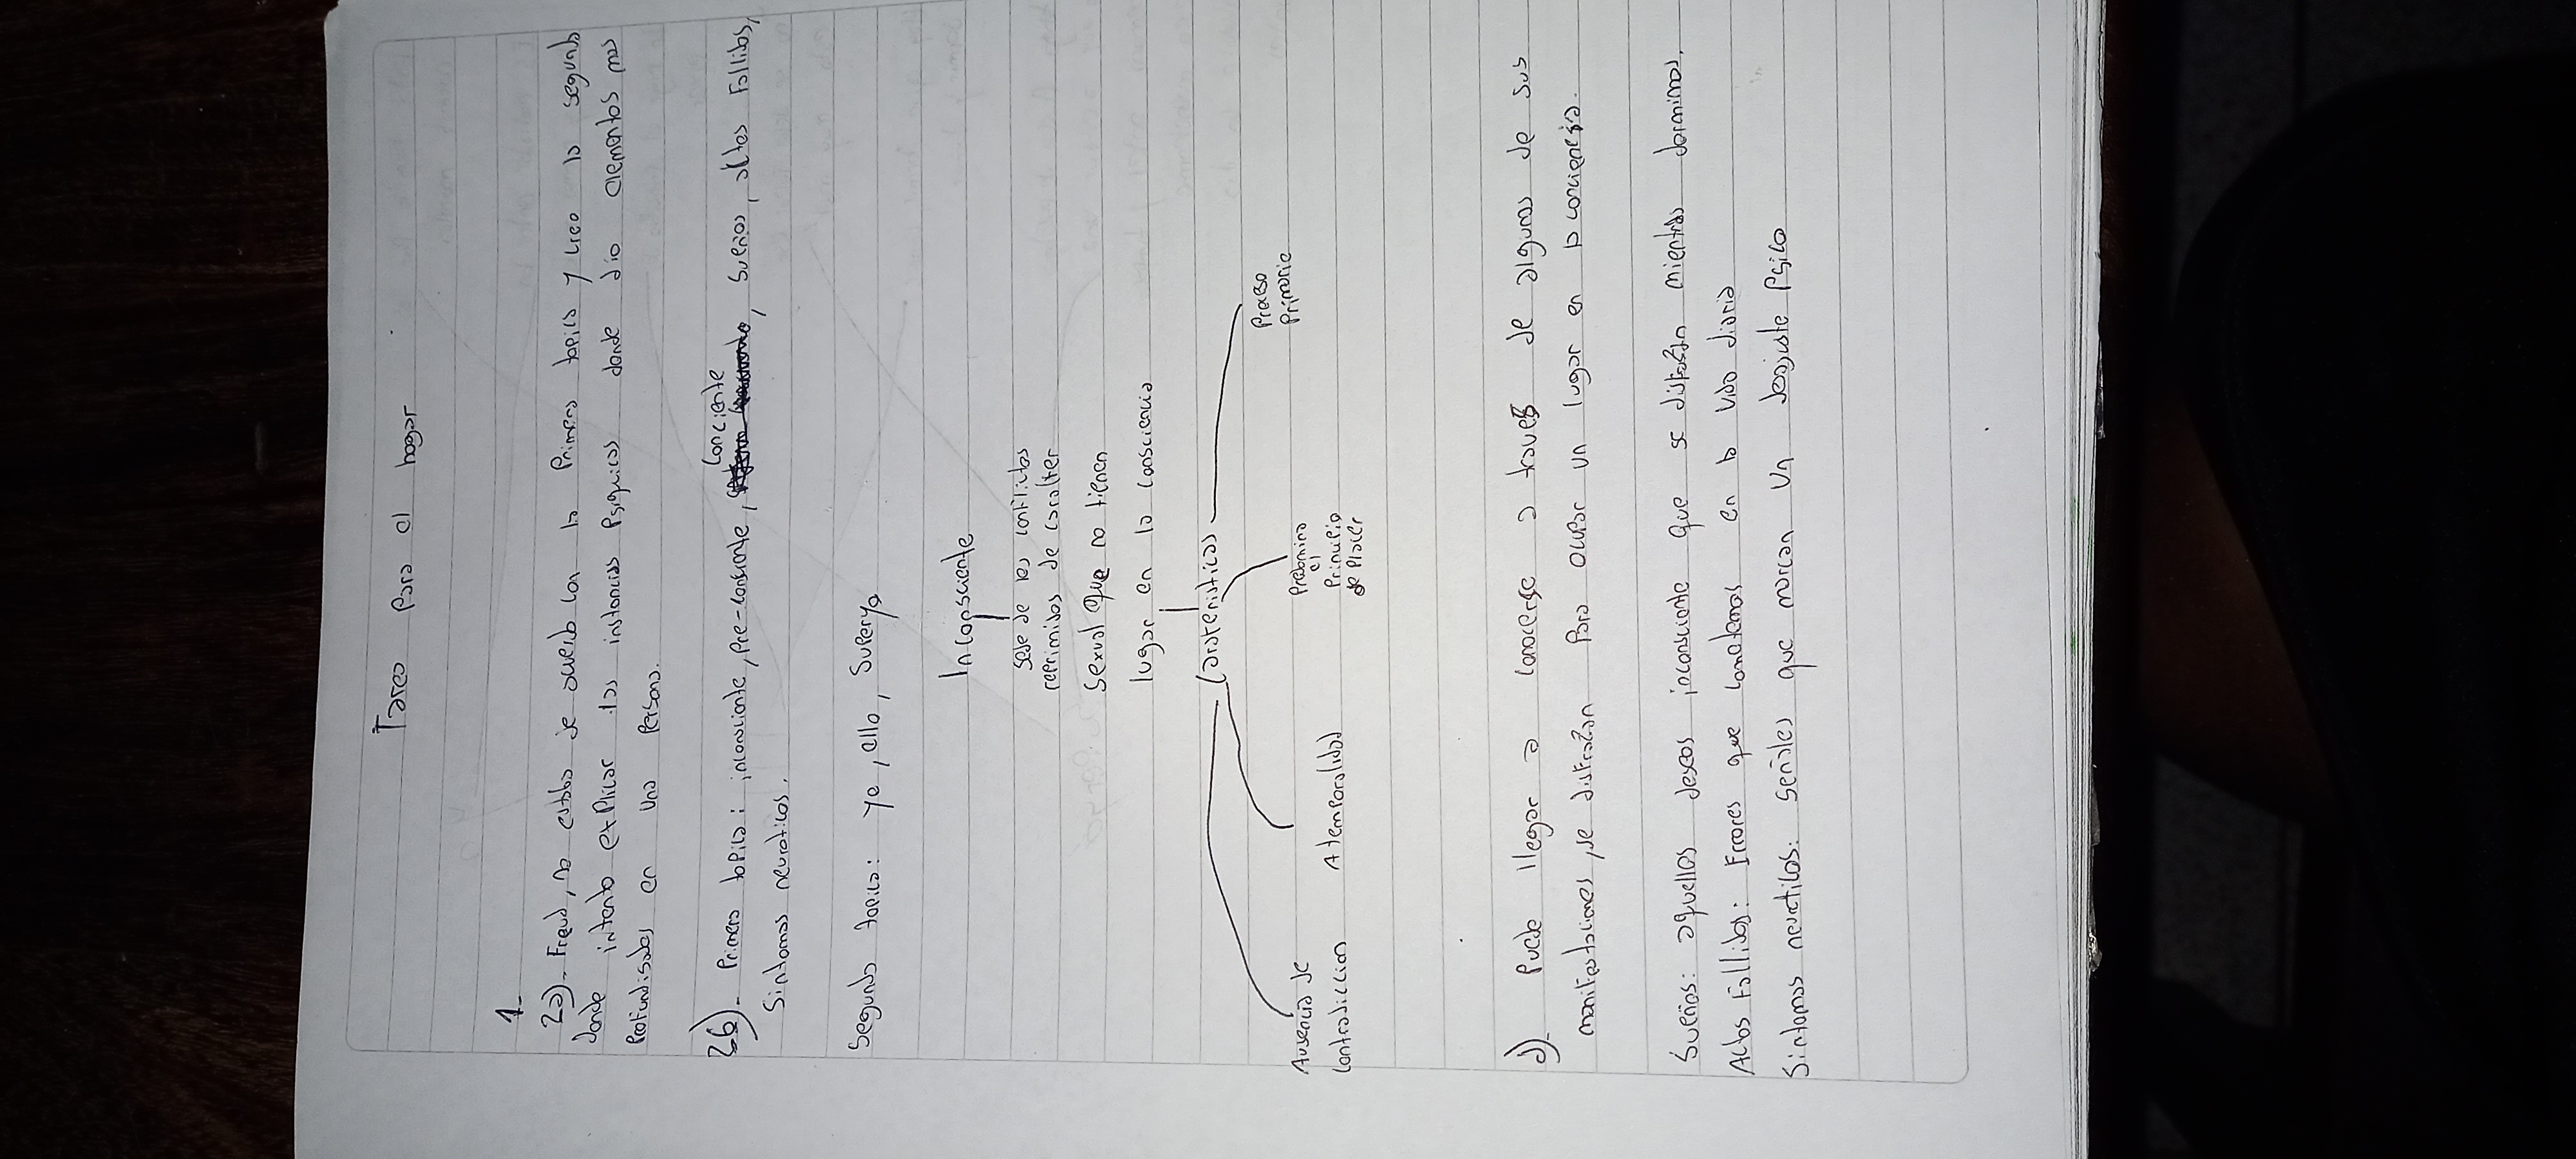 Tarea para el hogar
1-
2a)- Freud, no estaba de acuerdo con la Primera topica y creo la segunda
donde intento explicar las instancias Psiquicas donde dio elementos mas
Profundisados en una Persona.
2b)- Primera topica: inconsciente, pre-consiente, Conciente, sueños, actos Fallidos,
Sintomas neuroticos.
Segunda topica: yo, ello, Superyo
Inconsciente
sede de los contenidos
reprimidos de caracter
sexual que no tienen
lugar en la consciencia
Caracteristicas
Ausencia de
Contradiccion
Atemporalidad
Predomina
el
Principio
de Placer
Proceso
Primario
d)- Puede llegar a conocerse a traves de algunas de sus
manifestaciones, se disfrazan Para ocupar un lugar en la conciencia.
Sueños: aquellos deseos inconsciente que se disfrazan mientras dormimos.
Actos Fallidos: Errores que cometemos en la vida diaria
Sintomas neuroticos: señales que marcan un desajuste Psico